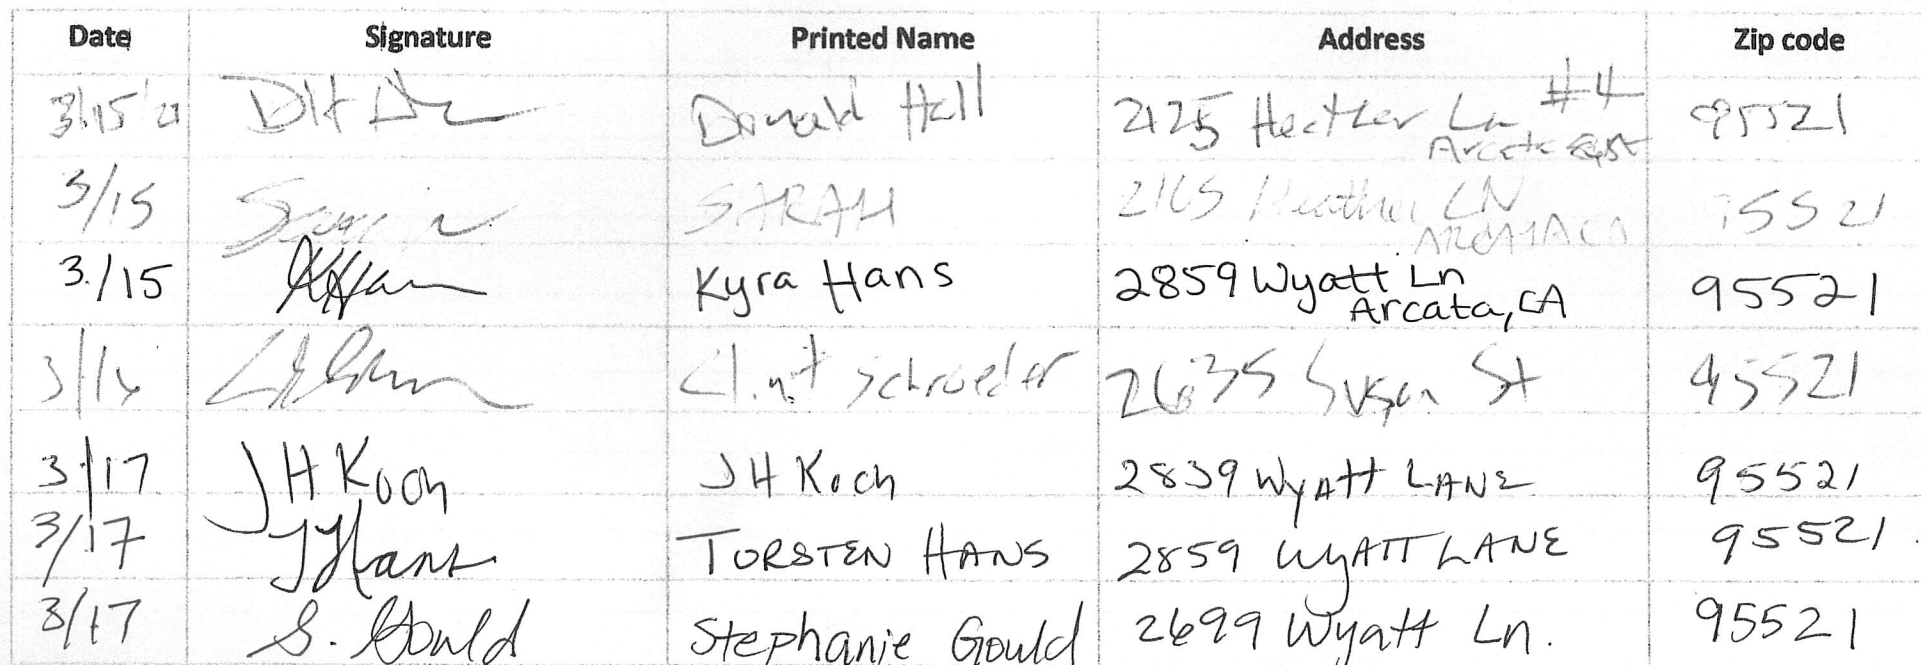 Date Signature Printed Name Address Zip code
3/15/21 Donald Hall 2125 Heather Ln #4 95521
Arcata
3/15 SARAH 2165 Heather LN 95521
ARCATA CA
3/15 KHans Kyra Hans 2859 Wyatt Ln 95521
Arcata, CA
3/16 Clint Schroeder 2635 Susan St 95521
3/17 JH Koch JH Koch 2839 WyAtt LANE 95521
3/17 THans TORSTEN HANS 2859 WyATT LANE 95521
3/17 S. Gould Stephanie Gould 2699 Wyatt Ln. 95521